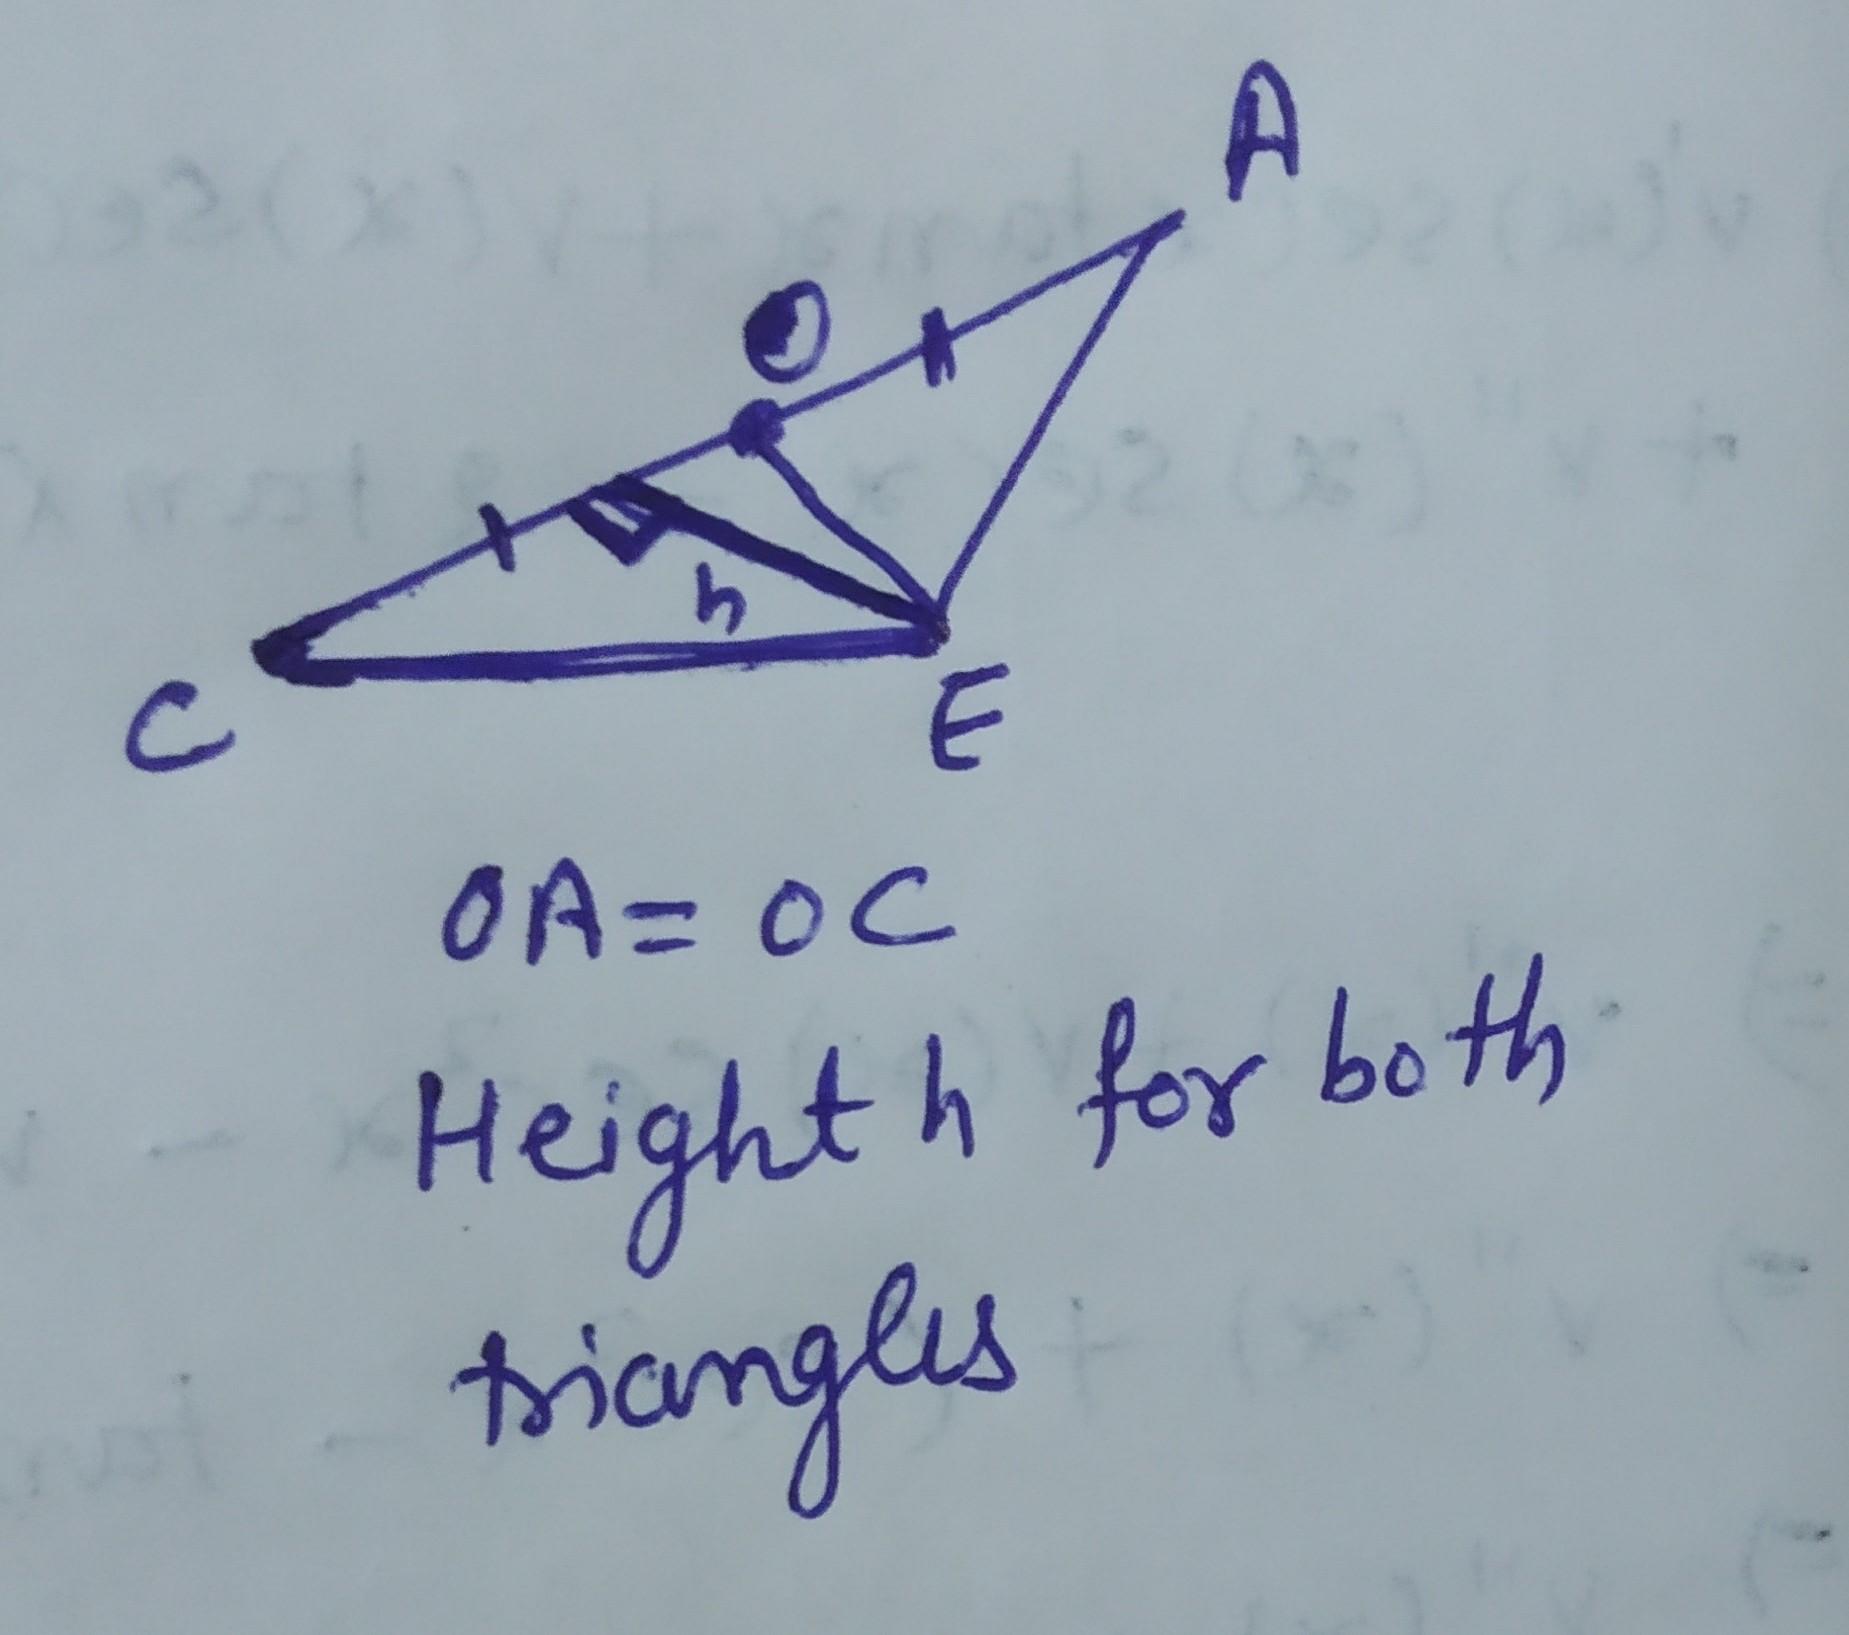 A
O
h
C
E
OA = OC
Height h for both
triangles